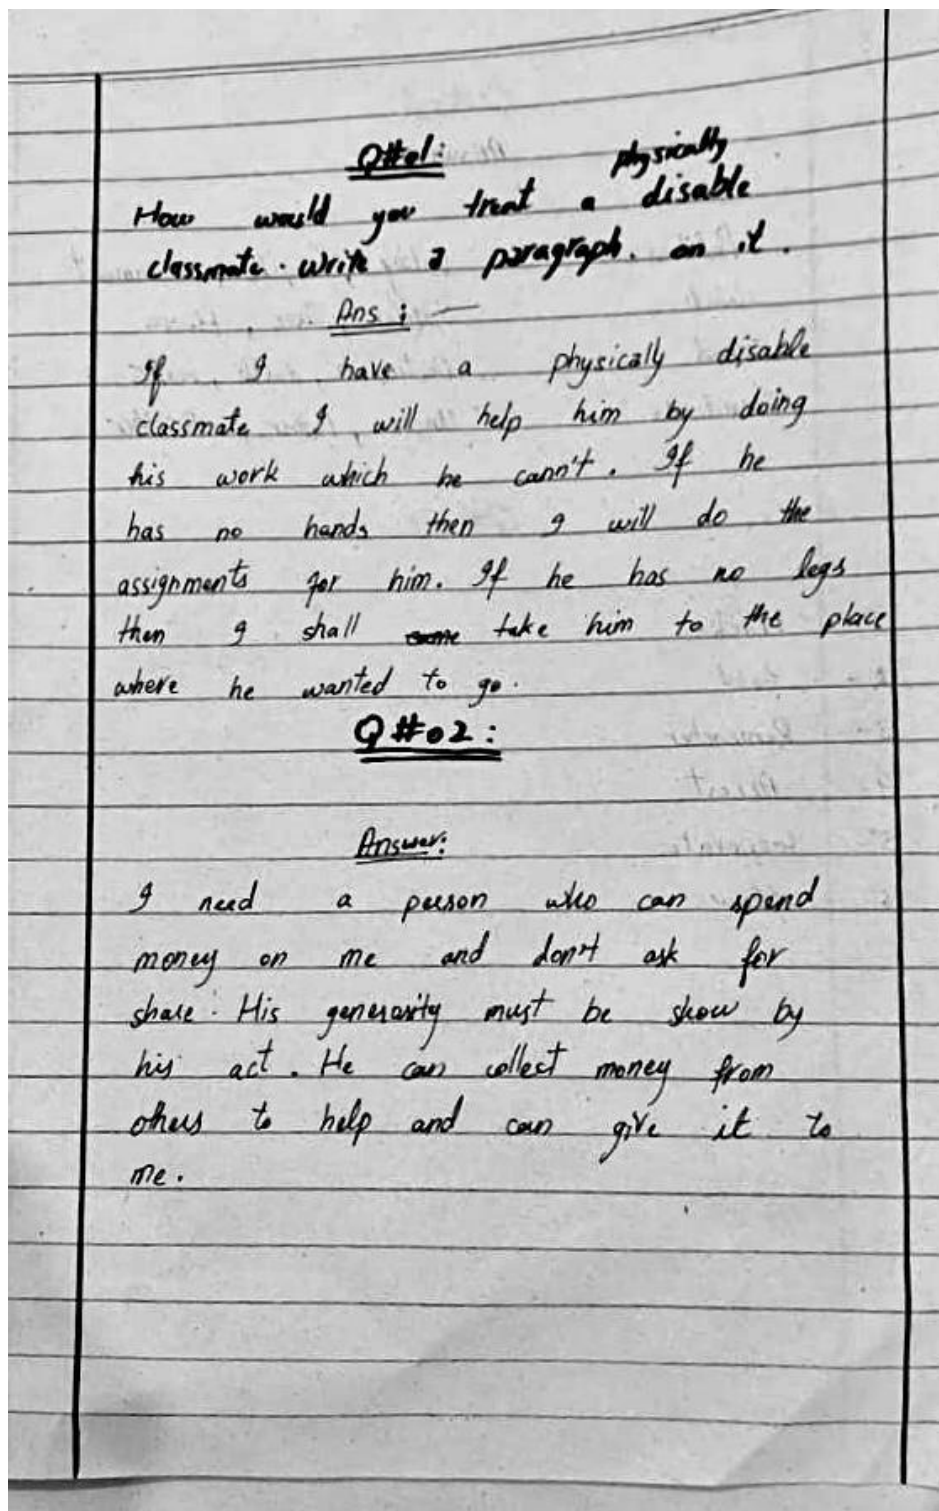 Q#01:
How would you treat a physically disable
classmate. write a paragraph. on it.
Ans :
If I have a physically disable
classmate I will help him by doing
his work which he cann't. If he
has no hands then I will do the
assignments for him. If he has no legs
then I shall take him to the place
where he wanted to go.
Q#02:
Answer:
I need a person who can spend
money on me and don't ask for
share. His generosity must be show by
his act. He can collect money from
others to help and can give it to
me.